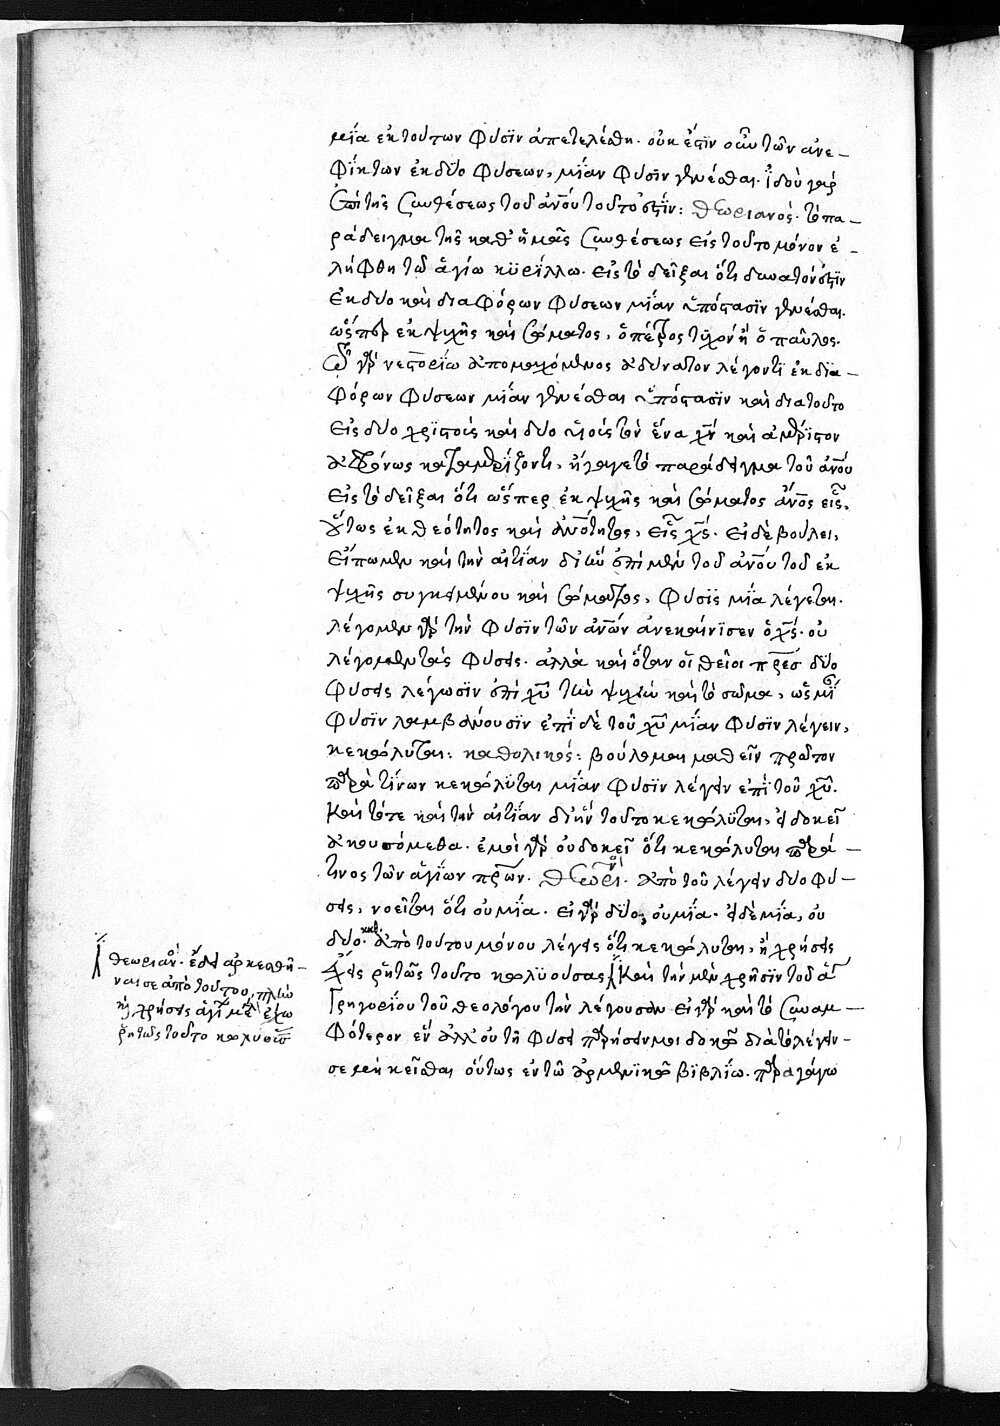 μία ἐκ τούτων φύσϊν ἀπετελέσθη. οὐκ ἔστϊν οὖν τῶν ἀνε-
φίκτων ἐκ δύο φύσεων, μίαν φύσϊν γενέσθαι. ἰδοὺ γὰρ
ἐπὶ τῆς συνθέσεως τοῦ ἀνού τοῦτό ἐστϊν: Θεωριανός. τὸ πα-
ράδειγμα τῆς καθ' ἡμᾶς συνθέσεως εἰς τοῦτο μόνον ἐ-
λήφθη τῶ ἁγίω κϋρίλλω. εἰς τὸ δεῖξαι ὅτι δυνατόν ἐστϊν
ἐκ δύο καὶ διαφόρων φύσεων μίαν ὑπόστασϊν γενέσθαι.
ὥσπερ ἐκ ψυχῆς καὶ σώματος, ὁ πέτρος τυχὸν ἢ ὁ παῦλος.
τῶ γὰρ νεστορίω ἀπομαχόμενος ἀδύνατον λέγοντϊ ἐκ δϊα-
φόρων φύσεων μίαν γενέσθαι ὑπόστασϊν καὶ διατοῦτο
εἰς δύο χρϊστοὺς καὶ δύο υἱοὺς τὸν ἕνα χν καὶ ἀμέρϊστον
ἀφρόνως καταμερίζοντι, ἤγαγε τὸ παράδειγμα τοῦ ἀνού
εἰς τὸ δεῖξαι ὅτι ὥσπερ ἐκ ψυχῆς καὶ σώματος ἄνος εἷς,
οὕτως ἐκ θεότητος καὶ ἀνότητος, εἷς χς. εἰ δὲ βούλει,
εἴπωμεν καὶ τὴν αἰτίαν δι' ἣν ἐπὶ μὲν τοῦ ἀνού τοῦ ἐκ
ψυχῆς συγκειμένου καὶ σώματος, φύσϊς μία λέγεται.
λέγομεν γὰρ τὴν φύσϊν τῶν ἀνων ἀνεκαίνϊσεν ὁ χς. οὐ
λέγομεν τὰς φύσεις. ἀλλὰ καὶ ὅταν οἱ θεῖοι πρες δύο
φύσεις λέγωσϊν ἐπὶ χυ τὴν ψυχὴν καὶ τὸ σῶμα, ὡς μίαν
φύσϊν λαμβάνουσϊν ἐπὶ δὲ τοῦ χυ μίαν φύσϊν λέγειν,
κεκώλυται: καθολικός: βούλομαι μαθεῖν πρῶτον
παρὰ τίνων κεκώλϋται μίαν φύσϊν λέγειν ἐπὶ τοῦ χυ.
καὶ τότε καὶ τὴν αἰτίαν δι' ἣν τοῦτο κεκώλϋται, εἰ δοκεῖ
ἀκουσόμεθα. ἐμοὶ γὰρ οὐ δοκεῖ ὅτι κεκώλυται παρά
τινος τῶν ἁγίων πρων. Θεωρι. ἀπὸ τοῦ λέγειν δύο φύ-
σεις, νοεῖται ὅτι οὐ μία. εἰ γὰρ δύο, οὐ μία. εἰ δὲ μία, οὐ
δύο. καθ. ἀπὸ τούτου μόνου λέγεις ὅτι κεκώλυται, ἢ χρήσεις
ἔχεις ῥητῶς τοῦτο κωλϋούσας καὶ τὴν μὲν χρῆσϊν τοῦ ἁγ
Γρηγορίου τοῦ θεολόγου τὴν λέγουσαν εἰ γὰρ καὶ τὸ συναμ-
φότερον ἓν ἀλλ' οὐ τῆ φύσει παρήσειν μοι δοκῶ διὰ τὸ λέγειν
σε μὴ κεῖσθαι οὕτως ἐν τῶ ἀρμενϊκῶ βϊβλίω. παραγάγω
θεωριαν. ἔδει ἀρκεσθῆ-
ναι σε ἀπὸ τούτου, πλὴν
ἢ χρήσεις ἁγι ἔχω
ῥητῶς τοῦτο κωλυούσ